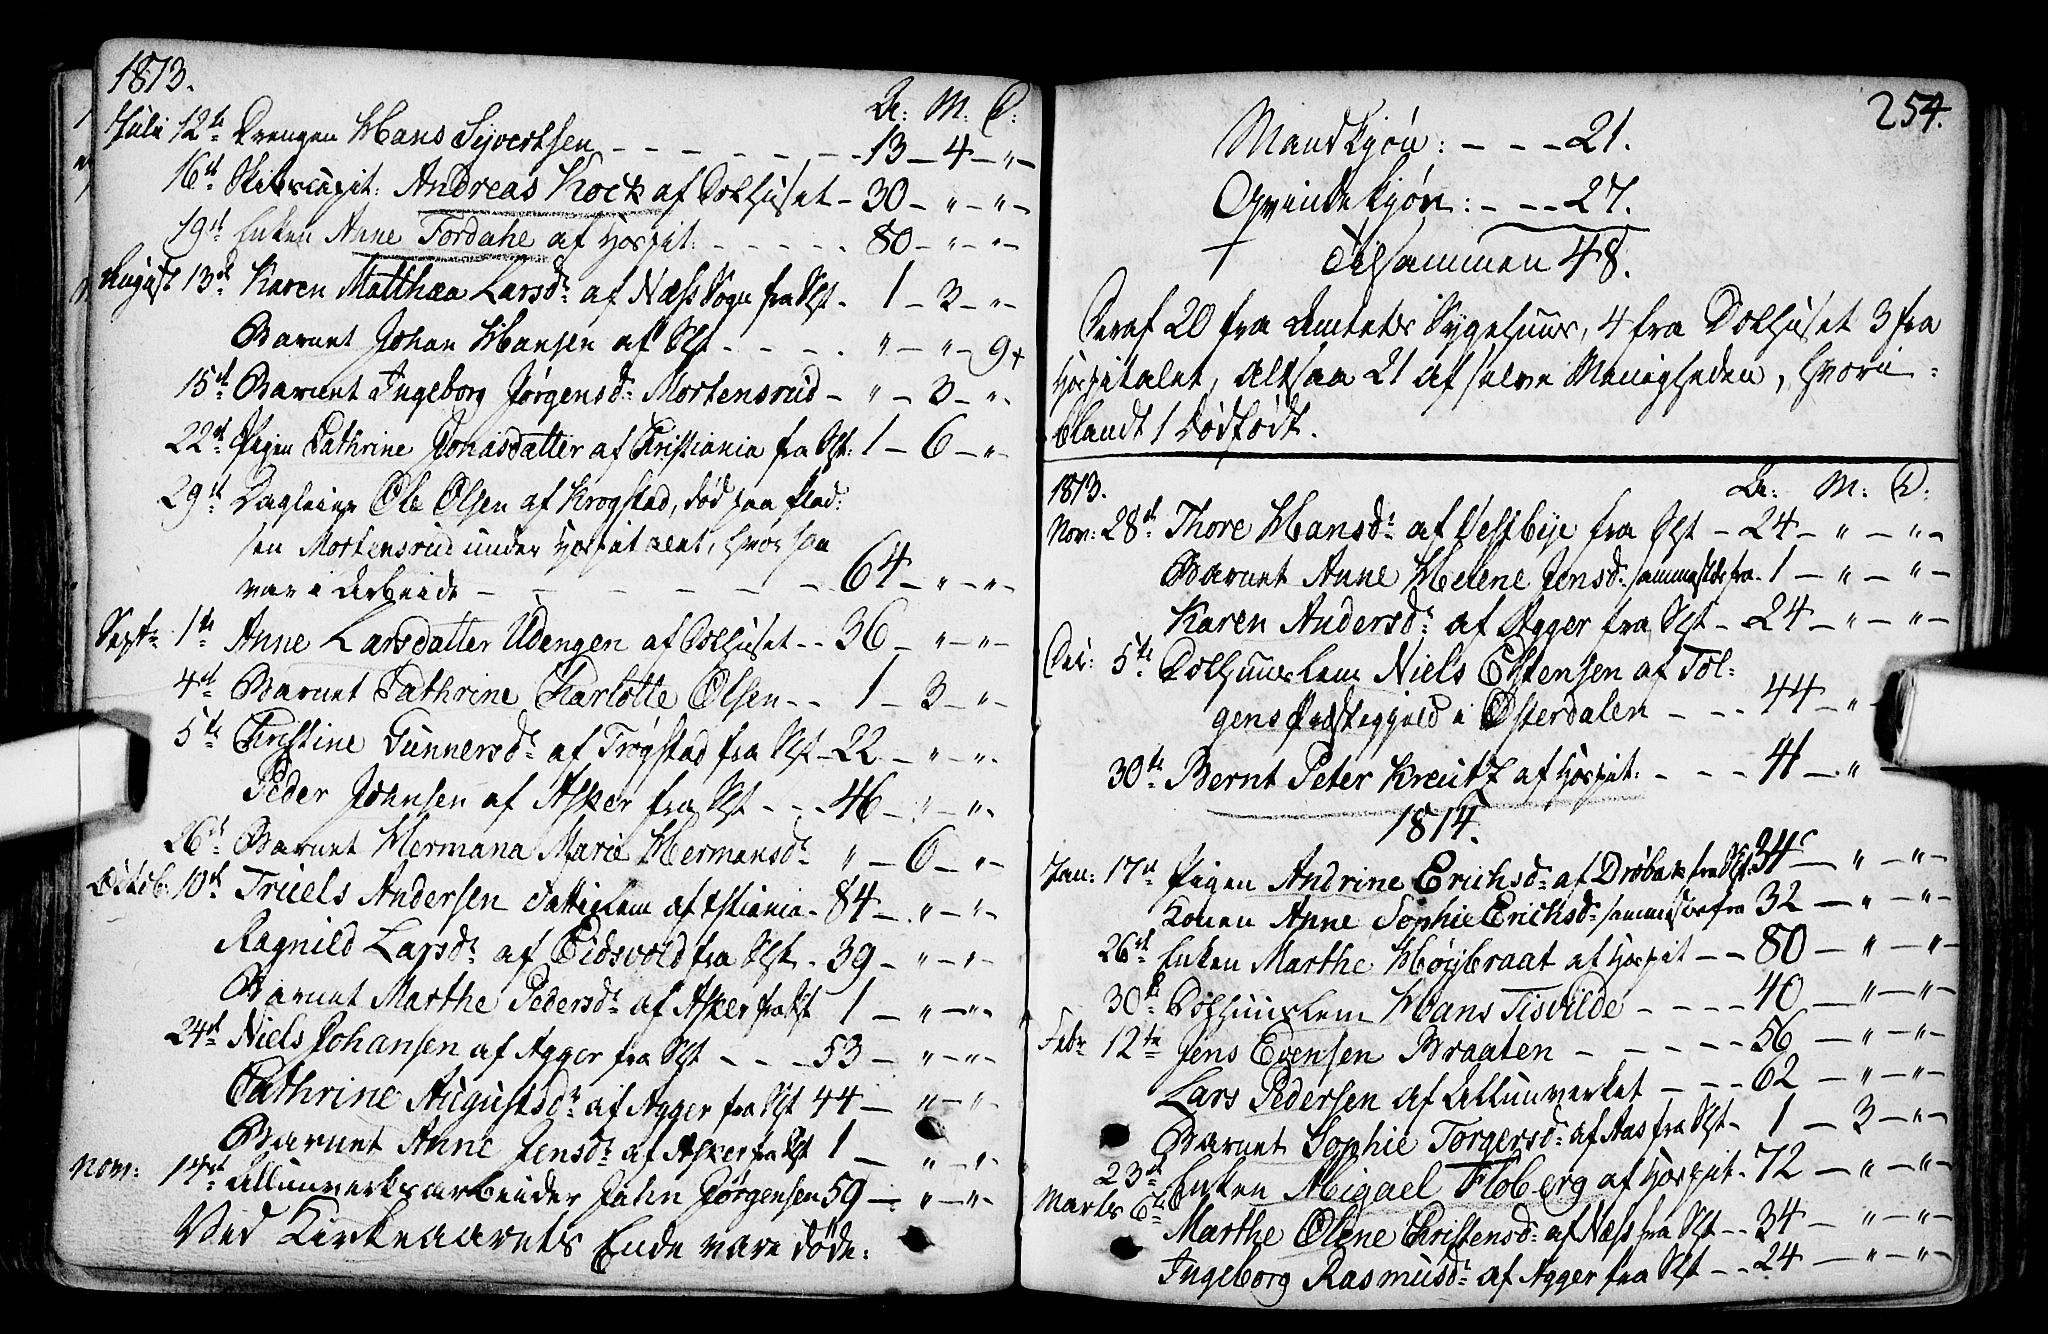 1813.
Aar: M: D:
Juli 12te Drengen Hans Syvertsen - - - - - - - 13 - 4 - " -
16de Skibscapit: Andreas Kock af Dolhuset - 30 - " - " -
19de Enken Anne Tordahe af Hospit: - - - - - 80 - " - " -
August 13de Karen Matthea Larsdr af Næss Sogn fra Slst - 1 - 3 - " -
Barnet Johan Hansen af Slst - - - - - " - " - 9+
15de Barnet Ingeborg Jørgensdr Mortensrud - " - 3 - " -
22de Pigen Cathrine Jonasdatter af Christiania fra Slst: 1 - 6 - " -
29de Dagleier Ole Olsen af Krogstad, død paa Plad:
sen Mortensrud under Hospitalet, hvor han
var i Arbeide - - - - - - 64 - " - " -
Septr 1te Anne Larsdatter Udengen af Dolhuset - - 36 - " - " -
4de Barnet Cathrine Charlotte Olsen - - 1 - 3 - " -
5te Christine Gunnersdr af Trøgstad fra Slst - 22 - " - " -
Peder Johnsen af Asker fra Slst - - - 46 - " - " -
26de Barnet Hermana Marie Hermansdr " - 6 - " -
Octob: 10de Truels Andersen Fattiglem af Christiania - 84 - " - " -
Ragnild Larsdr af Eidsvold fra Slst - 39 - " - " -
Barnet Marthe Pedersdr af Asker fra Slst 1 - " - " -
24de Niels Johansen af Agger fra Slst - - - 53 - " - " -
Cathrine Augustsdr af Agger fra Slst 44 - " - " -
Barnet Anne Jensdr af Asker fra Slst 1 - " - " -
Nov: 14de Allunverksarbeider John Jørgensen 59 - " - " -
Ved Kirkeaarets Ende vare døde:
254.
Mandkjøn: - - - 21.
Qvindekjøn: - - - 27.
Tilsammen 48.
Deraf 20 fra Amtets Sygehuus, 4 fra Dolhuset 3 fra
Hospitalet, altsaa 21 af selve Menigheden, hvori:
blandt 1 dødfødt.
1813. Aar: M: D:
Nov: 28de Thore Hansdr af Vestbye fra Slst - 24 - " - " -
Barnet Anne Helene Jensdr sammesteds fra - 1 - " - " -
Karen Andersdr af Agger fra Slst - 24 - " - " -
Dec: 5te Dolhuuslem Niels Estensen af Tol:
gens Præstegjeld i Østerdalen - - - 44 - " -
30te Bernt Peter Kreutz af Hospit: - - - - 41 - " -
1814.
Jan: 17de Pigen Andrine Erichsdr af Drøbak fra Slst 34 - " - " -
Konen Anne Sophie Erichsdr sammesteds fra 32 - " - " -
26de Enken Marthe Høybraat af Hospit - - 80 - " - " -
30te Dolhuuslem Hans Tisvilde - - - - 40 - " - " -
Febr 12te Jens Evensen Braaten - - - - - 56 - " - " -
Lars Pedersen af Allunverket - - - 62 - " - " -
Barnet Sophie Torgersdr af Aas fra Slst - 1 - 3 - " -
23de Enken Abigael Floberg af Hospit - 72 - " - " -
Marts 6te Marthe Olene Christensdr af Næss fra Slst - - 34 - " - " -
Ingeborg Rasmusdr af Agger fra Slst - - 24 - " - " -